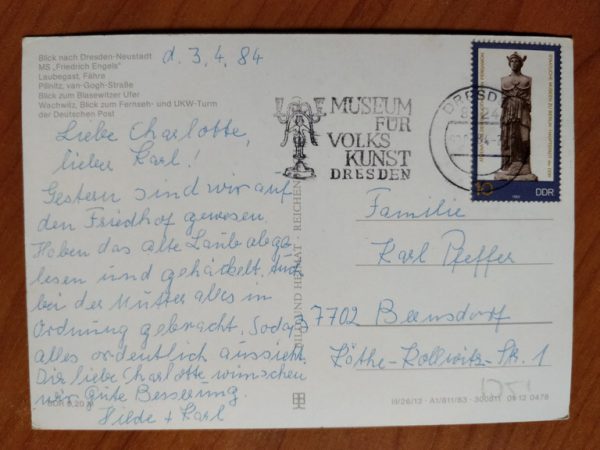 Blick nach Dresden-Neustadt
MS „Friedrich Engels"
Laubegast, Fähre
Pillnitz, van-Gogh-Straße
Blick zum Blasewitzer Ufer
Wachwitz, Blick zum Fernseh- und UKW-Turm
der Deutschen Post
d. 3. 4. 84
Liebe Charlotte,
lieber Karl!
Gestern sind wir auf
den Friedhof gewesen.
Haben das alte Laub abge-
lesen und gehackelt. Auch
bei der Mutter alles in
Ordnung gebracht. Sodaß
alles ordentlich aussieht.
Dir liebe Charlotte wünschen
wir gute Besserung.
Hilde + Karl
BILD UND HEIMAT · REICHEN
MUSEUM
FÜR
VOLKS
KUNST
DRESDEN
DRESD
10
DDR
Familie
Karl Pfeffer
7702 Bernsdorf
Käthe-Kollwitz-Str. 1
III/26/12 · A1/811/83 · 300811 01 12 0478